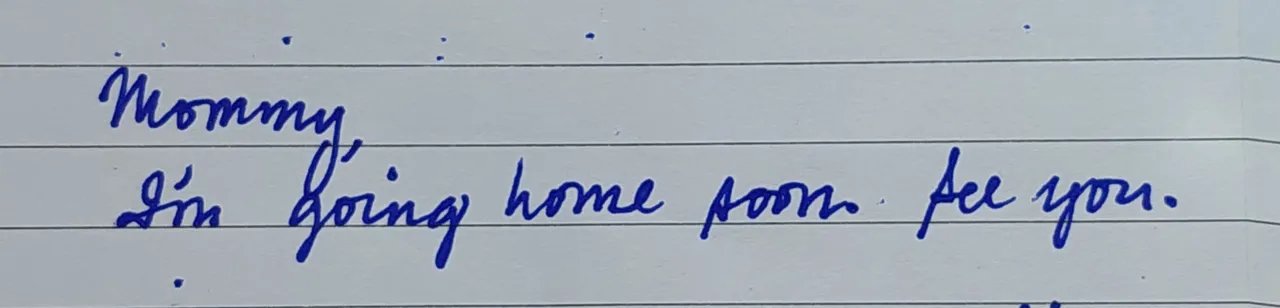 Mommy,
I'm going home soon. See you.